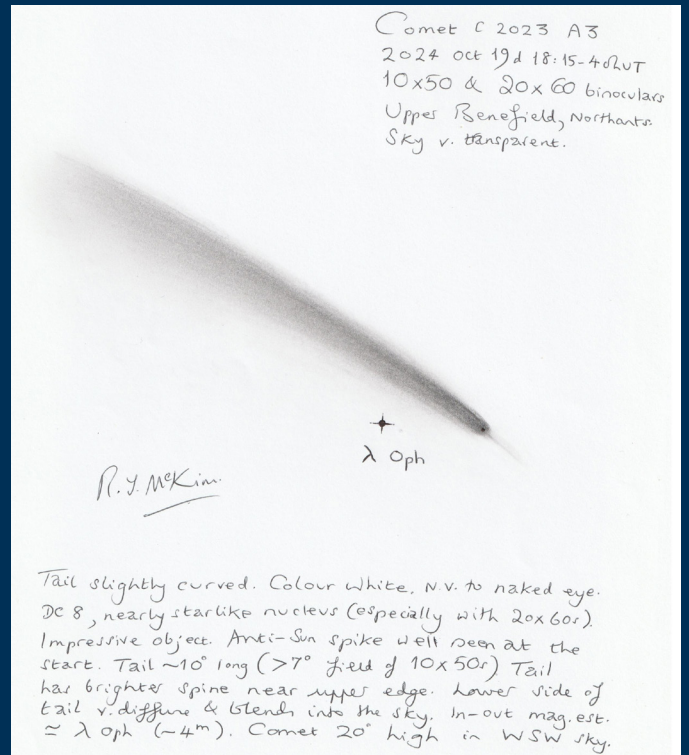 Comet C 2023 A3
2024 Oct 19d 18:15-40hUT
10x50 & 20x60 binoculars
Upper Benefield, Northants.
Sky v. transparent.
λ Oph
R.J. McKim.
Tail slightly curved. Colour white, N.V. to naked eye.
DC 8, nearly starlike nucleus (especially with 20x60s).
Impressive object. Anti-Sun spike well seen at the
start. Tail ~10° long (>7° field of 10x50s) Tail
has brighter spine near upper edge. Lower side of
tail v. diffuse & blends into the sky. In-out mag. est.
≃ λ Oph (~4ᵐ). Comet 20° high in WSW sky.